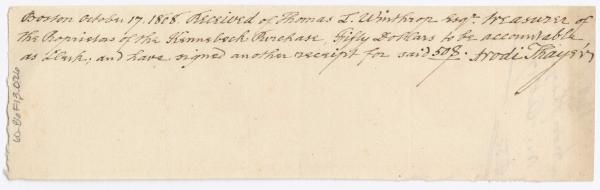 Boston October 17. 1808. Received of Thomas L. Winthrop Esqr. treasurer of
the Proprietors of the Kennebeck Purchase, Fifty Dollars to be accountable
as Clerk, and have signed another receipt for said 50$. Arodi Thayer
60-B6F13-026